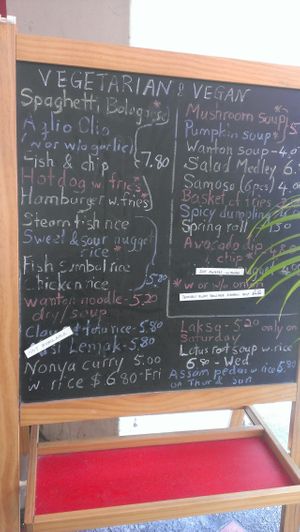 VEGETARIAN & VEGAN
Spaghetti Bolognese*
Aglio Olio
w or w/o garlic
Fish & chip
7.80
Hotdog w fries*
Hamburger w. fries*
Steam fish rice
Sweet & sour nugget
rice *
Fish Sambal rice
Chicken rice
5.80
wanton noodle - 5.20
dry/soup
Claypot tofu rice - 5.80
Nasi Lemak - 5.80
Nonya curry 5.00
w. rice $ 6.80 - Fri
Mushroom soup*
Pumpkin soup*
Wanton soup - 4.
Salad Medley 6.
Samosa (6pcs) 4.
Basket of fries
Spicy dumpling
Spring roll
Avocado dip
& chip *
* w or w/o onion
Laksa - 5.20 only on
Saturday
Lotus root soup w. rice
6.80 - Wed
Assam pedas w. rice 6.80
on Thur & Sun